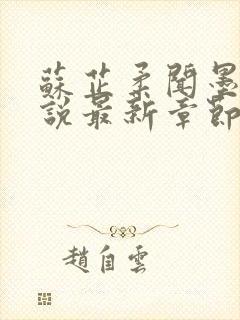 蘇芷柔聞墨
說最新章節
趙自雲